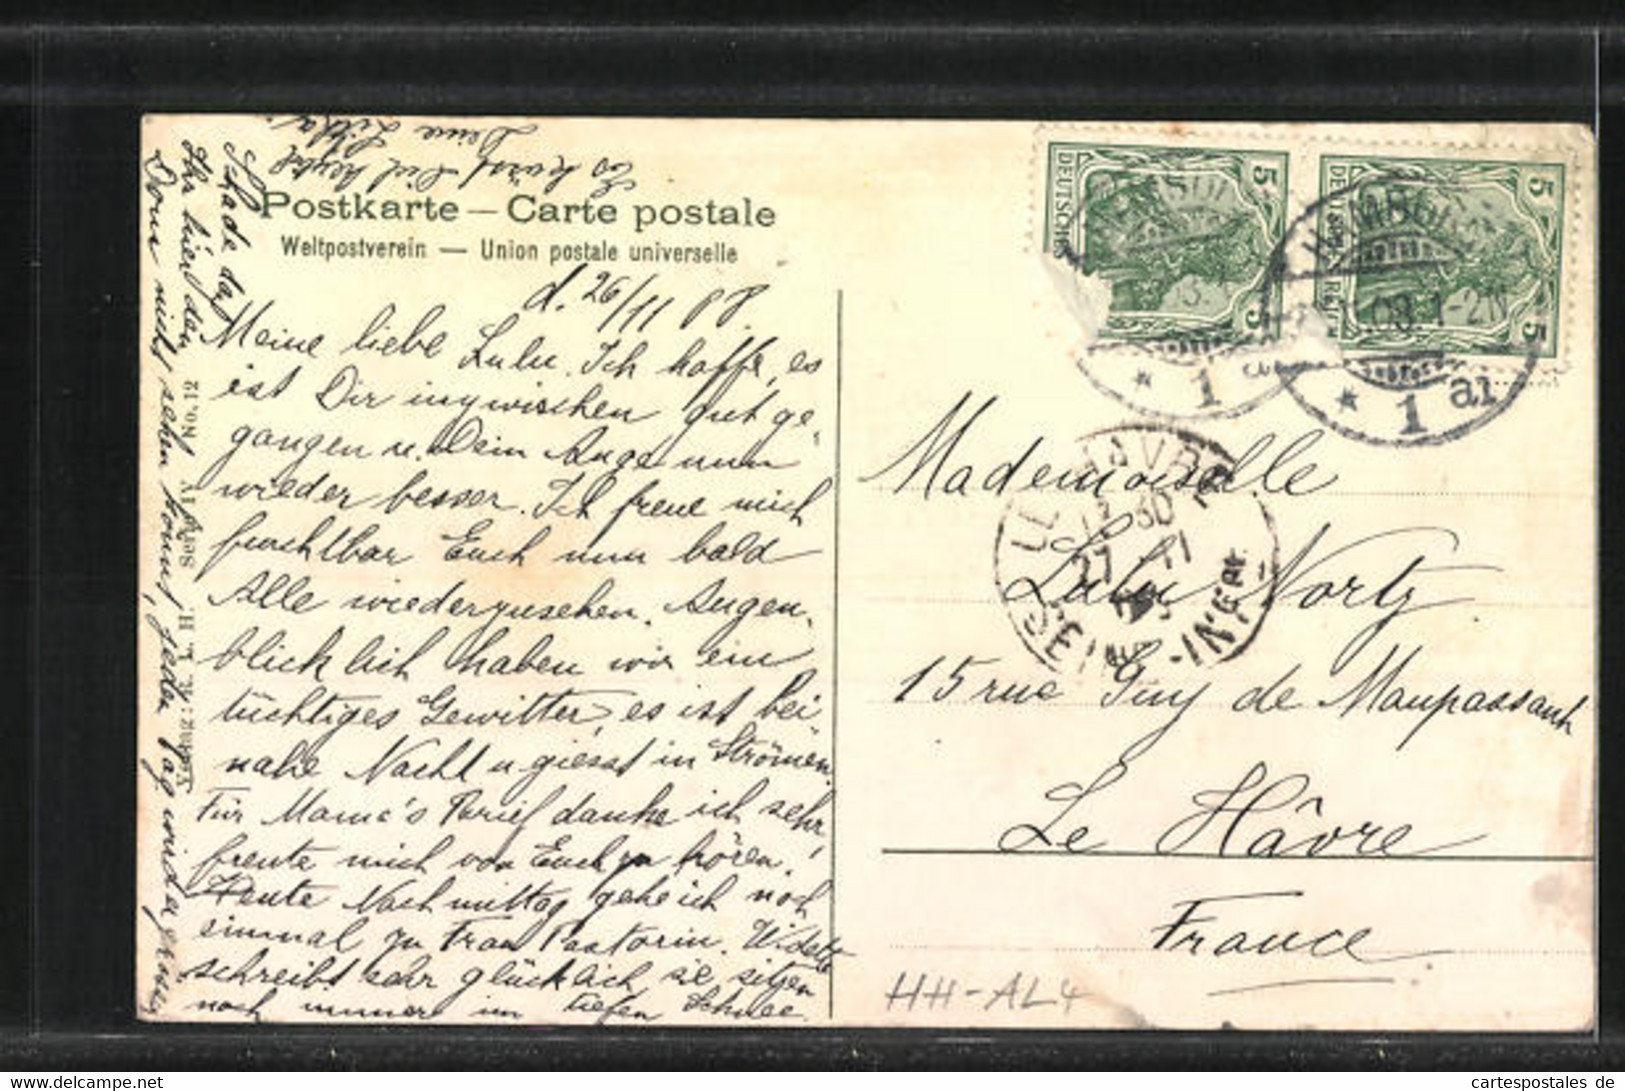 Es küsst Dich herzl.
Deine Lilka
Postkarte – Carte postale
Weltpostverein — Union postale universelle
d. 26/11 08
Meine liebe Lulu. Ich hoffe, es
ist Dir inzwischen gut ge-
gangen u. Dein Auge nun
wieder besser. Ich freue mich
furchtbar Euch nun bald
Alle wiederzusehen. Augen-
blicklich haben wir ein
tüchtiges Gewitter, es ist bei-
nahe Nacht u. giesst in Strömen.
Für Mama's Brief danke ich sehr,
freute mich von Euch zu hören.
Heute Nachmittag gehe ich noch
einmal zu Frau Pastorin.
schreibt sehr glücklich, sie sitzen
noch immer im tiefen Schnee.
Schade das
Ihr hier den
Dom nicht sehn könnt, jeden Tag wird er grösser
Ser. IV No. 12
DEUTSCHES
5
5
DEUTSCHES REICH
5
5
HAMBURG
.08.1-2N
* 1
* 1 a1
LE HAVRE
27 11
SEINE-INF
Mademoiselle
Lulu Nortz
15 rue Guy de Maupassant
Le Hâvre
France
HH-AL4
cartespostales de
https://www.cartespostales.de